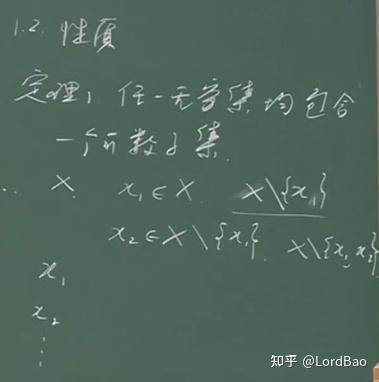 1.2. 性质
定理1 任一无穷集均包含
一个可数子集.
X x₁∈X. X\{x₁}
x₂∈X\{x₁}. X\{x₁,x₂}
x₁
x₂
⋮
知乎 @LordBao